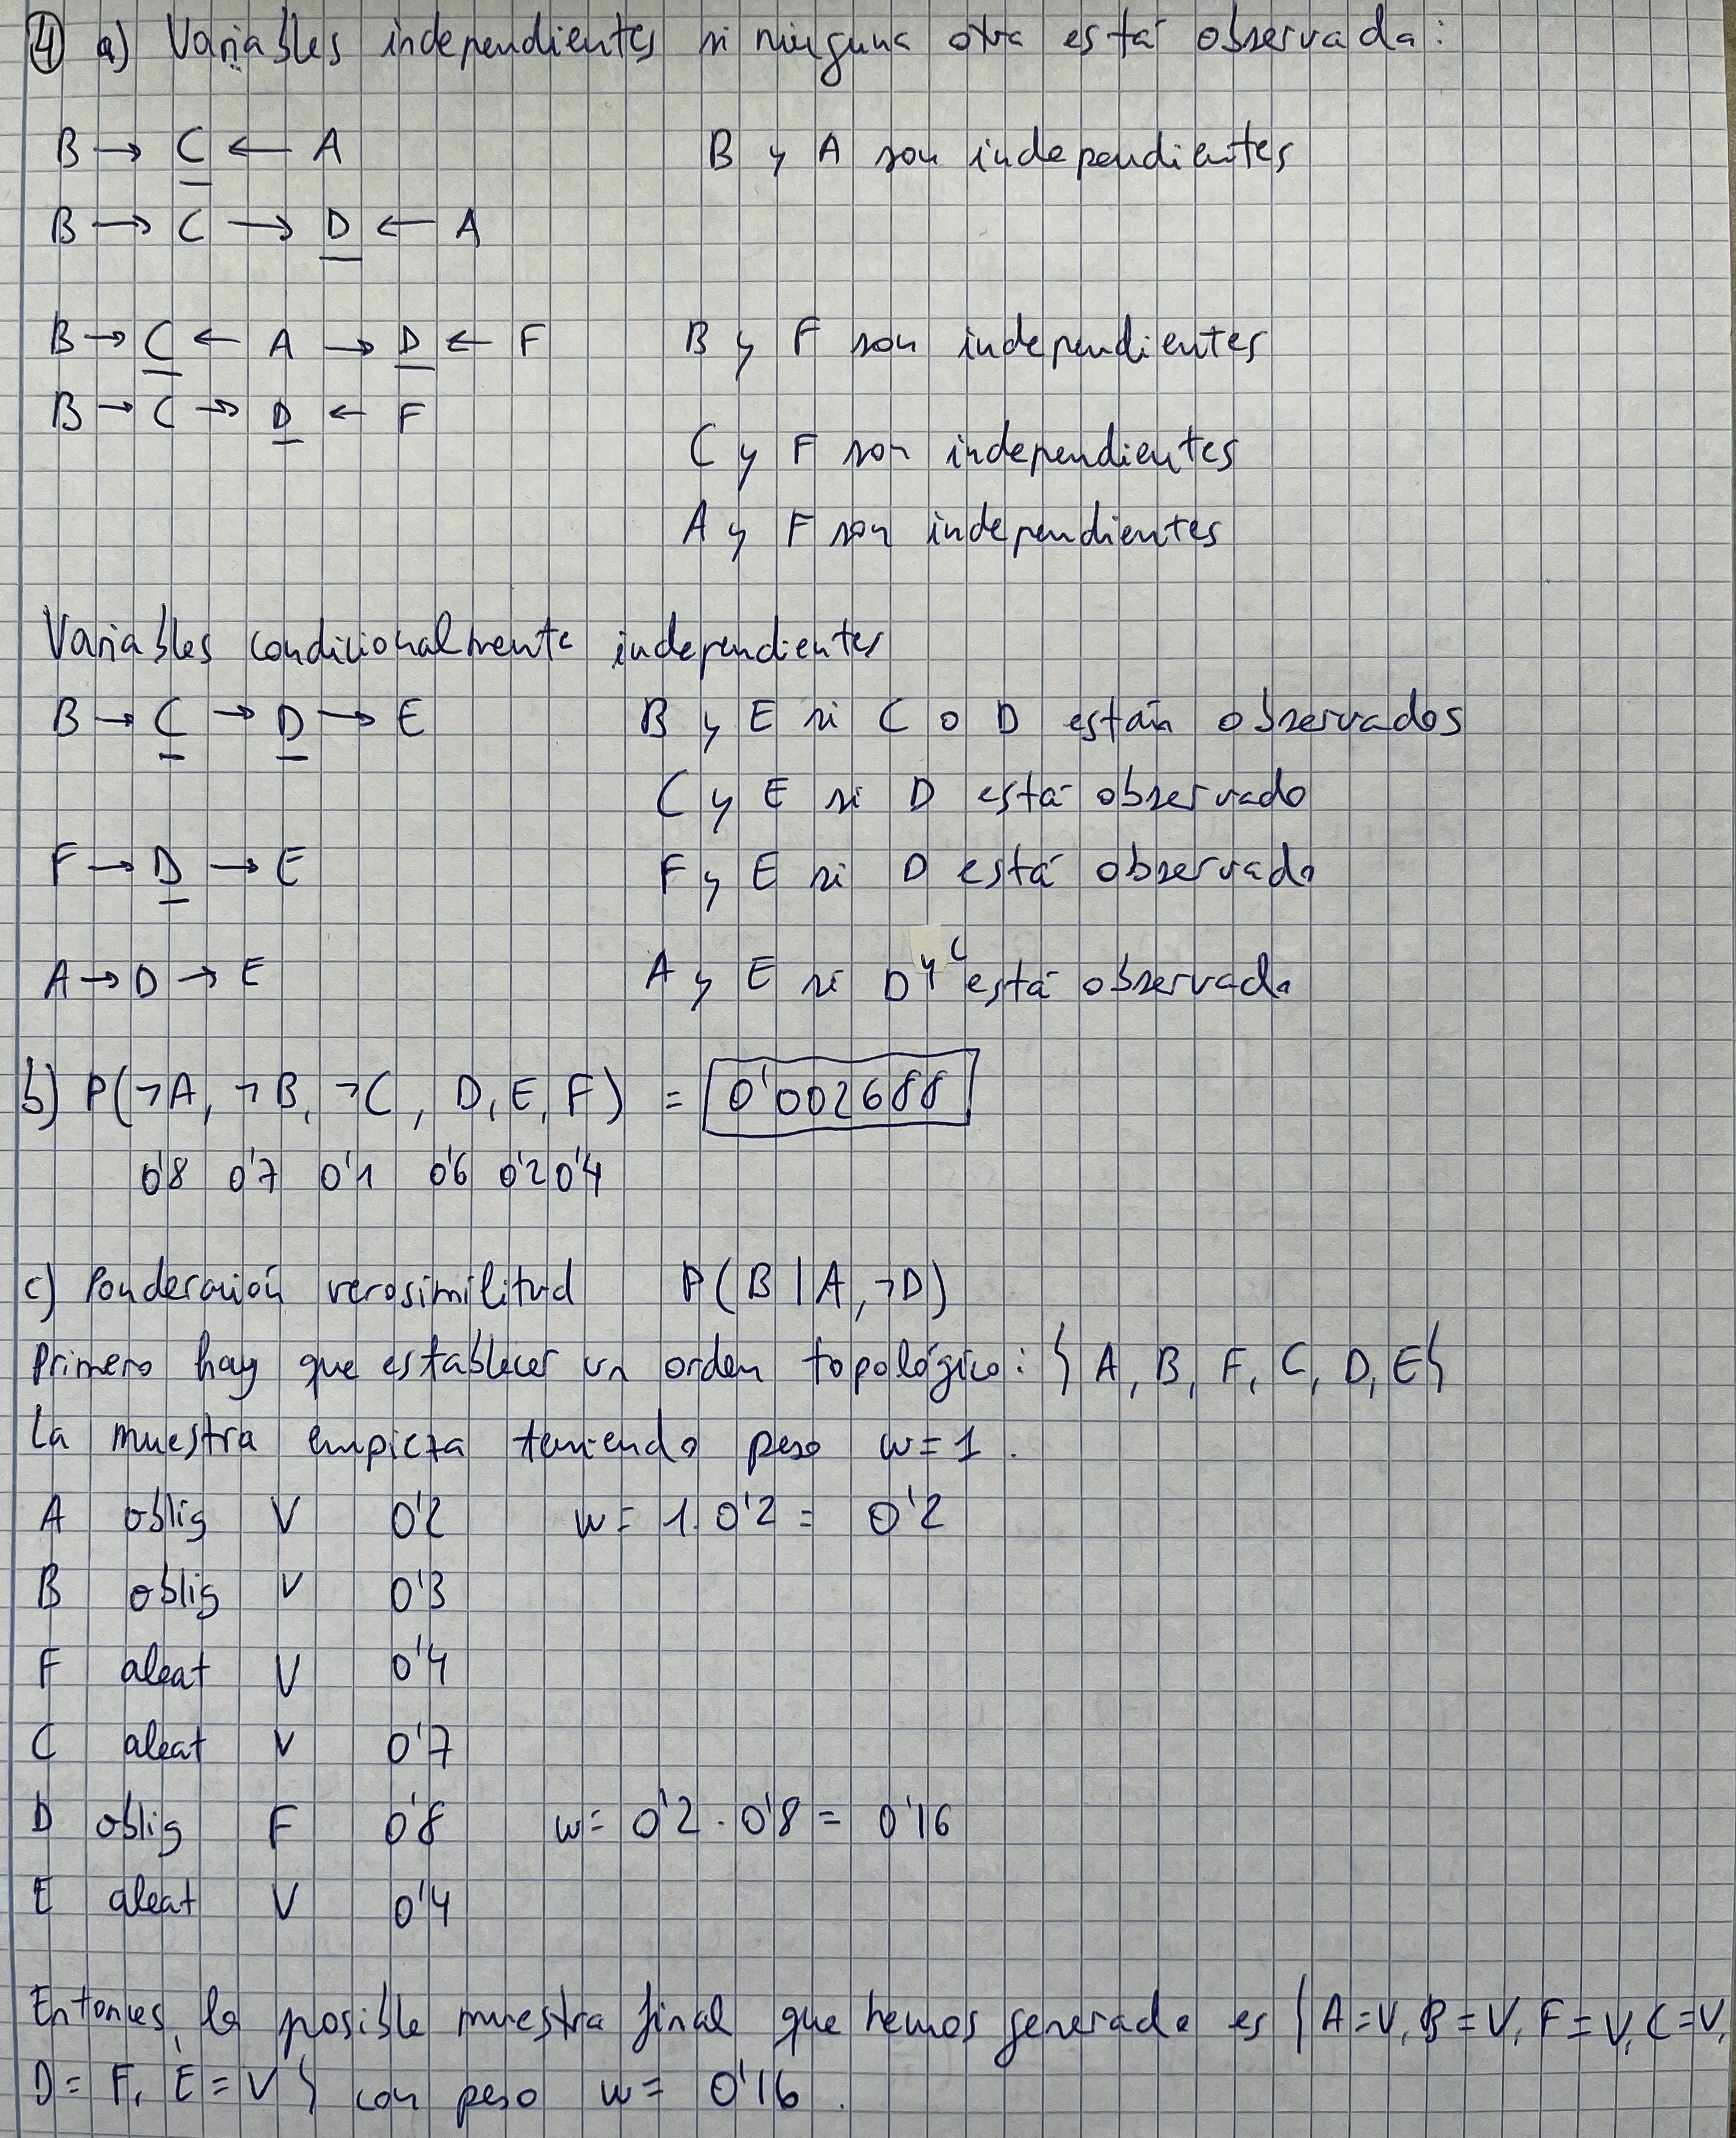 4 a) Variables independientes si ninguna otra está observada:
B → C ← A B y A son independientes
B → C → D ← A
B → C ← A → D ← F B y F son independientes
B → C → D ← F
C y F son independientes
A y F son independientes
Variables condicionalmente independientes
B → C → D → E B y E si C o D están observados
C y E si D está observado
F → D → E F y E si D está observado
A → D → E A y E si D y C está observado
b) P(¬A, ¬B, ¬C, D, E, F) = 0'002688
0'8 0'7 0'1 0'6 0'2 0'4
c) Ponderación verosimilitud P(B | A, ¬D)
Primero hay que establecer un orden topológico: { A, B, F, C, D, E }
La muestra empieza teniendo peso w = 1.
A oblig V 0'2 w = 1 · 0'2 = 0'2
B oblig V 0'3
F aleat V 0'4
C aleat V 0'7
D oblig F 0'8 w = 0'2 · 0'8 = 0'16
E aleat V 0'4
Entonces, la posible muestra final que hemos generado es { A = V, B = V, F = V, C = V,
D = F, E = V } con peso w = 0'16.